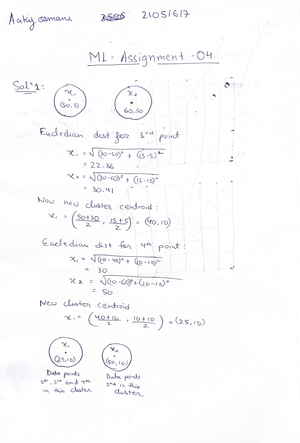 2105167
ML - Assignment - 04
Sol^n 1:
x₁
(50,5)
x₂
60,50
Eucledian dist for 3rd point
x₁ = √(30-50)² + (15-5)²
= 22.36
x₂ = √(30-60)² + (15-10)²
= 30.41
Now new cluster centroid :
x₁ = (50+30/2, 15+5/2) = (40,10)
Eucledian dist for 4th point :
x₁ = √(10-40)² + (10-10)²
= 30
x₂ = √(10-60)² + (10-10)²
= 50
New cluster centroid
x₁ = (40+10/2, 10+10/2) = (25,10)
x₁
(25,10)
x₂
(60,10)
Data points
1st, 3rd and 4th
in this cluster
Data points
2nd in this
cluster